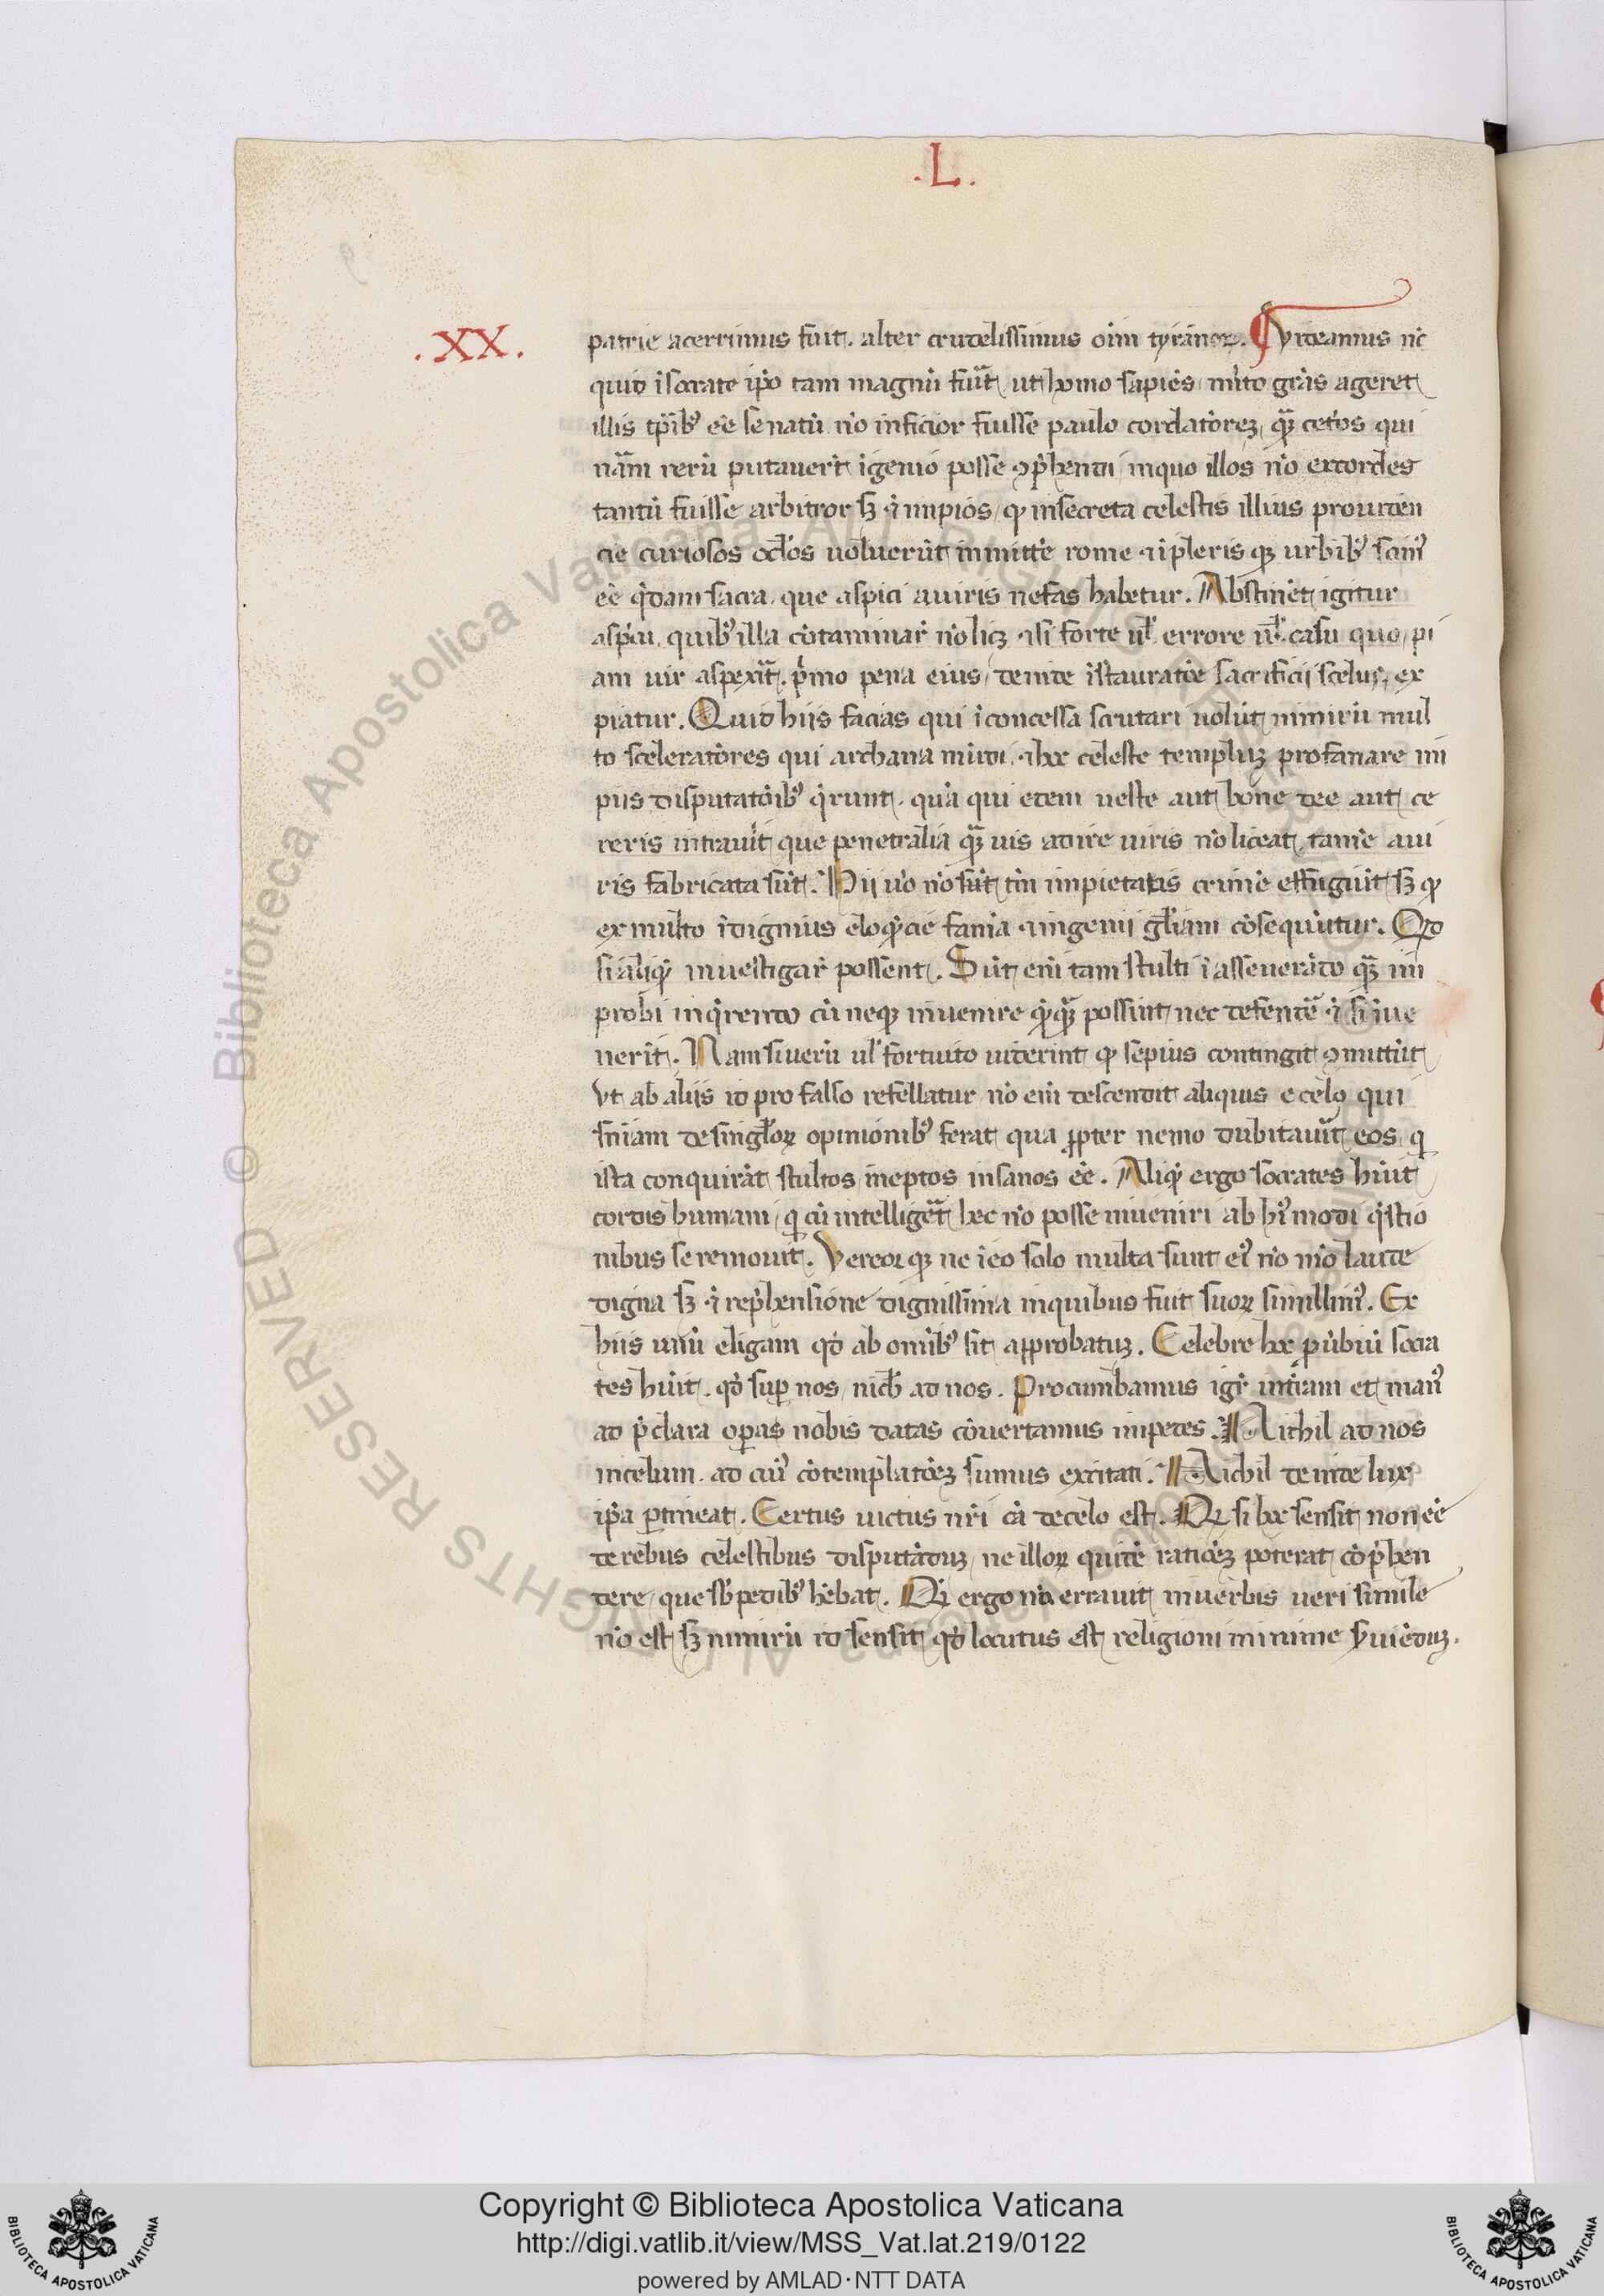 .L.
.XX.
patrie acerrimus fuit. alter crudelissimus oīm tyrānoꝝ. ¶ Videamus nc̄
quid ī socrate ip̄o tam magnū fuīt ut homo sapiēs mīto grās ageret
illis tp̄ib⁹ ēē senatū nō inficior fuisse paulo cordatōreꝫ qꝫ̄ cet̄os qui
nām rerū putaverīt īgenio posse ꝯp̄hendi inquo illos nō excordes
tantū fuisse arbitror sꝫ ⁊ impios qͥ insecreta celestis illius prouiden
cie curiosos oclōs uoluerūt inmittē rome ⁊ īpleris qꝫ urbib⁹ scim⁹
ēē q̄dam sacra que aspici a uiris nefas habetur. Abstinēt igitur
asp̄cu quib⁹ illa cōtaminar̄ nō licꝫ ⁊ si forte ul̄ errore ul̄ casu quo pi
am uir aspexīt. p̄mo pena eius deinde īstauratōe sacrificij scelus ex
piatur. Quid hiis facias qui īconcessa scrutari uolūt nimirū mul
to sceleratōres qui archana mūdi ⁊ hoc celeste templuꝫ profanare im
piis disputatōib⁹ q̄runt quā qui edem ueste aut bone dee aut ce
reris intrauīt que penetralia qꝫ̄ uis adire uiris nō liceat tamē a ui
ris fabricata sūt. Hii uō nō sūt tm̄ impietatis crimē effugiūt sꝫ qͥ
ex multo īdignius eloq̄cie fama ⁊ ingenij gl̄iam cōsequūtur. Qd
si aliqͥ inuestigar̄ possent. Sūt em̄ tam stulti ī asseuerādo qꝫ̄ im
probi inq̄rendo cū neqꝫ inuenire qͥqꝫ̄ possint nec defendē ⁊ si īue
nerīt. Nam si uerū ul̄ fortuito uiderint qͥ sepius contingit ꝯmittūt
Vt ab aliis id pro falso refellatur nō em̄ descendit aliquis e celo qui
sn̄iam de singl̄oꝝ opinionib⁹ ferat qua ꝓpter nemo dubitauīt eos q
ista conquirāt stultos ineptos insanos ēē. Aliqͥ ergo socrates hūit
cordis humani q cū intelligēt hec nō posse inueniri ab hꝰ modi q̄stio
nibus se remouit. Vereor qꝫ ne ī eo solo multa sunt eꝰ nō mō laude
digna sꝫ ⁊ rep̄hensione dignissima inquibus fuit suoꝝ simillimꝰ. Ex
hiis unū eligam qd̄ ab omīb⁹ sit approbatuꝫ. Celebre hoc p̄ubiū socra
tes hūit. qd̄ supͬ nos nichͥl ad nos. Procumbamus igr̄ int̄ram et manꝰ
ad p̄clara opͤas nobis datas cōuertamus in pedes. ¶ Nichil ad nos
incelum. ad cuiꝰ cōtemplatōeꝫ sumus excitati. ¶ Nichil deinde lux
ip̄a ꝑtineat. Certus uictus nr̄i cā de celo est. Qꝫ si hoc sensit non ēē
de rebus celestibus disputāduꝫ ne illoꝝ quidē ratiōeꝫ poterat cōp̄hen
dere que sb̄ pedib⁹ hēbat. ergo nō errauit inuerbis ueri simile
nō est sꝫ nimirū id sensit qd̄ locutus est religioni minime s̄uiēduꝫ.
© Biblioteca Apostolica Vaticana ALL RIGHTS RESERVED
BIBLIOTECA APOSTOLICA VATICANA
Copyright © Biblioteca Apostolica Vaticana
http://digi.vatlib.it/view/MSS_Vat.lat.219/0122
powered by AMLAD·NTT DATA
BIBLIOTECA APOSTOLICA VATICANA